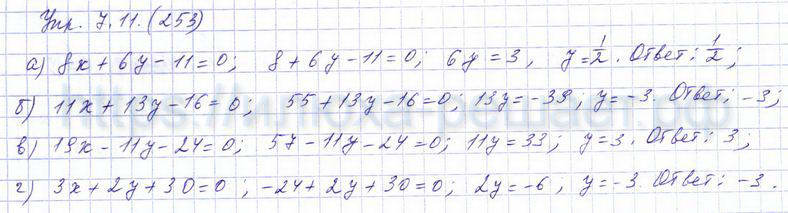 Упр. 7.11. (253)
а) 8x + 6y - 11 = 0; 8 + 6y - 11 = 0; 6y = 3, y = 1/2. Ответ: 1/2;
б) 11x + 13y - 16 = 0; 55 + 13y - 16 = 0; 13y = -39; y = -3. Ответ: -3;
https://илюха-решает.рф
в) 19x - 11y - 24 = 0; 57 - 11y - 24 = 0; 11y = 33; y = 3. Ответ: 3;
г) 3x + 2y + 30 = 0; -24 + 2y + 30 = 0; 2y = -6; y = -3. Ответ: -3.